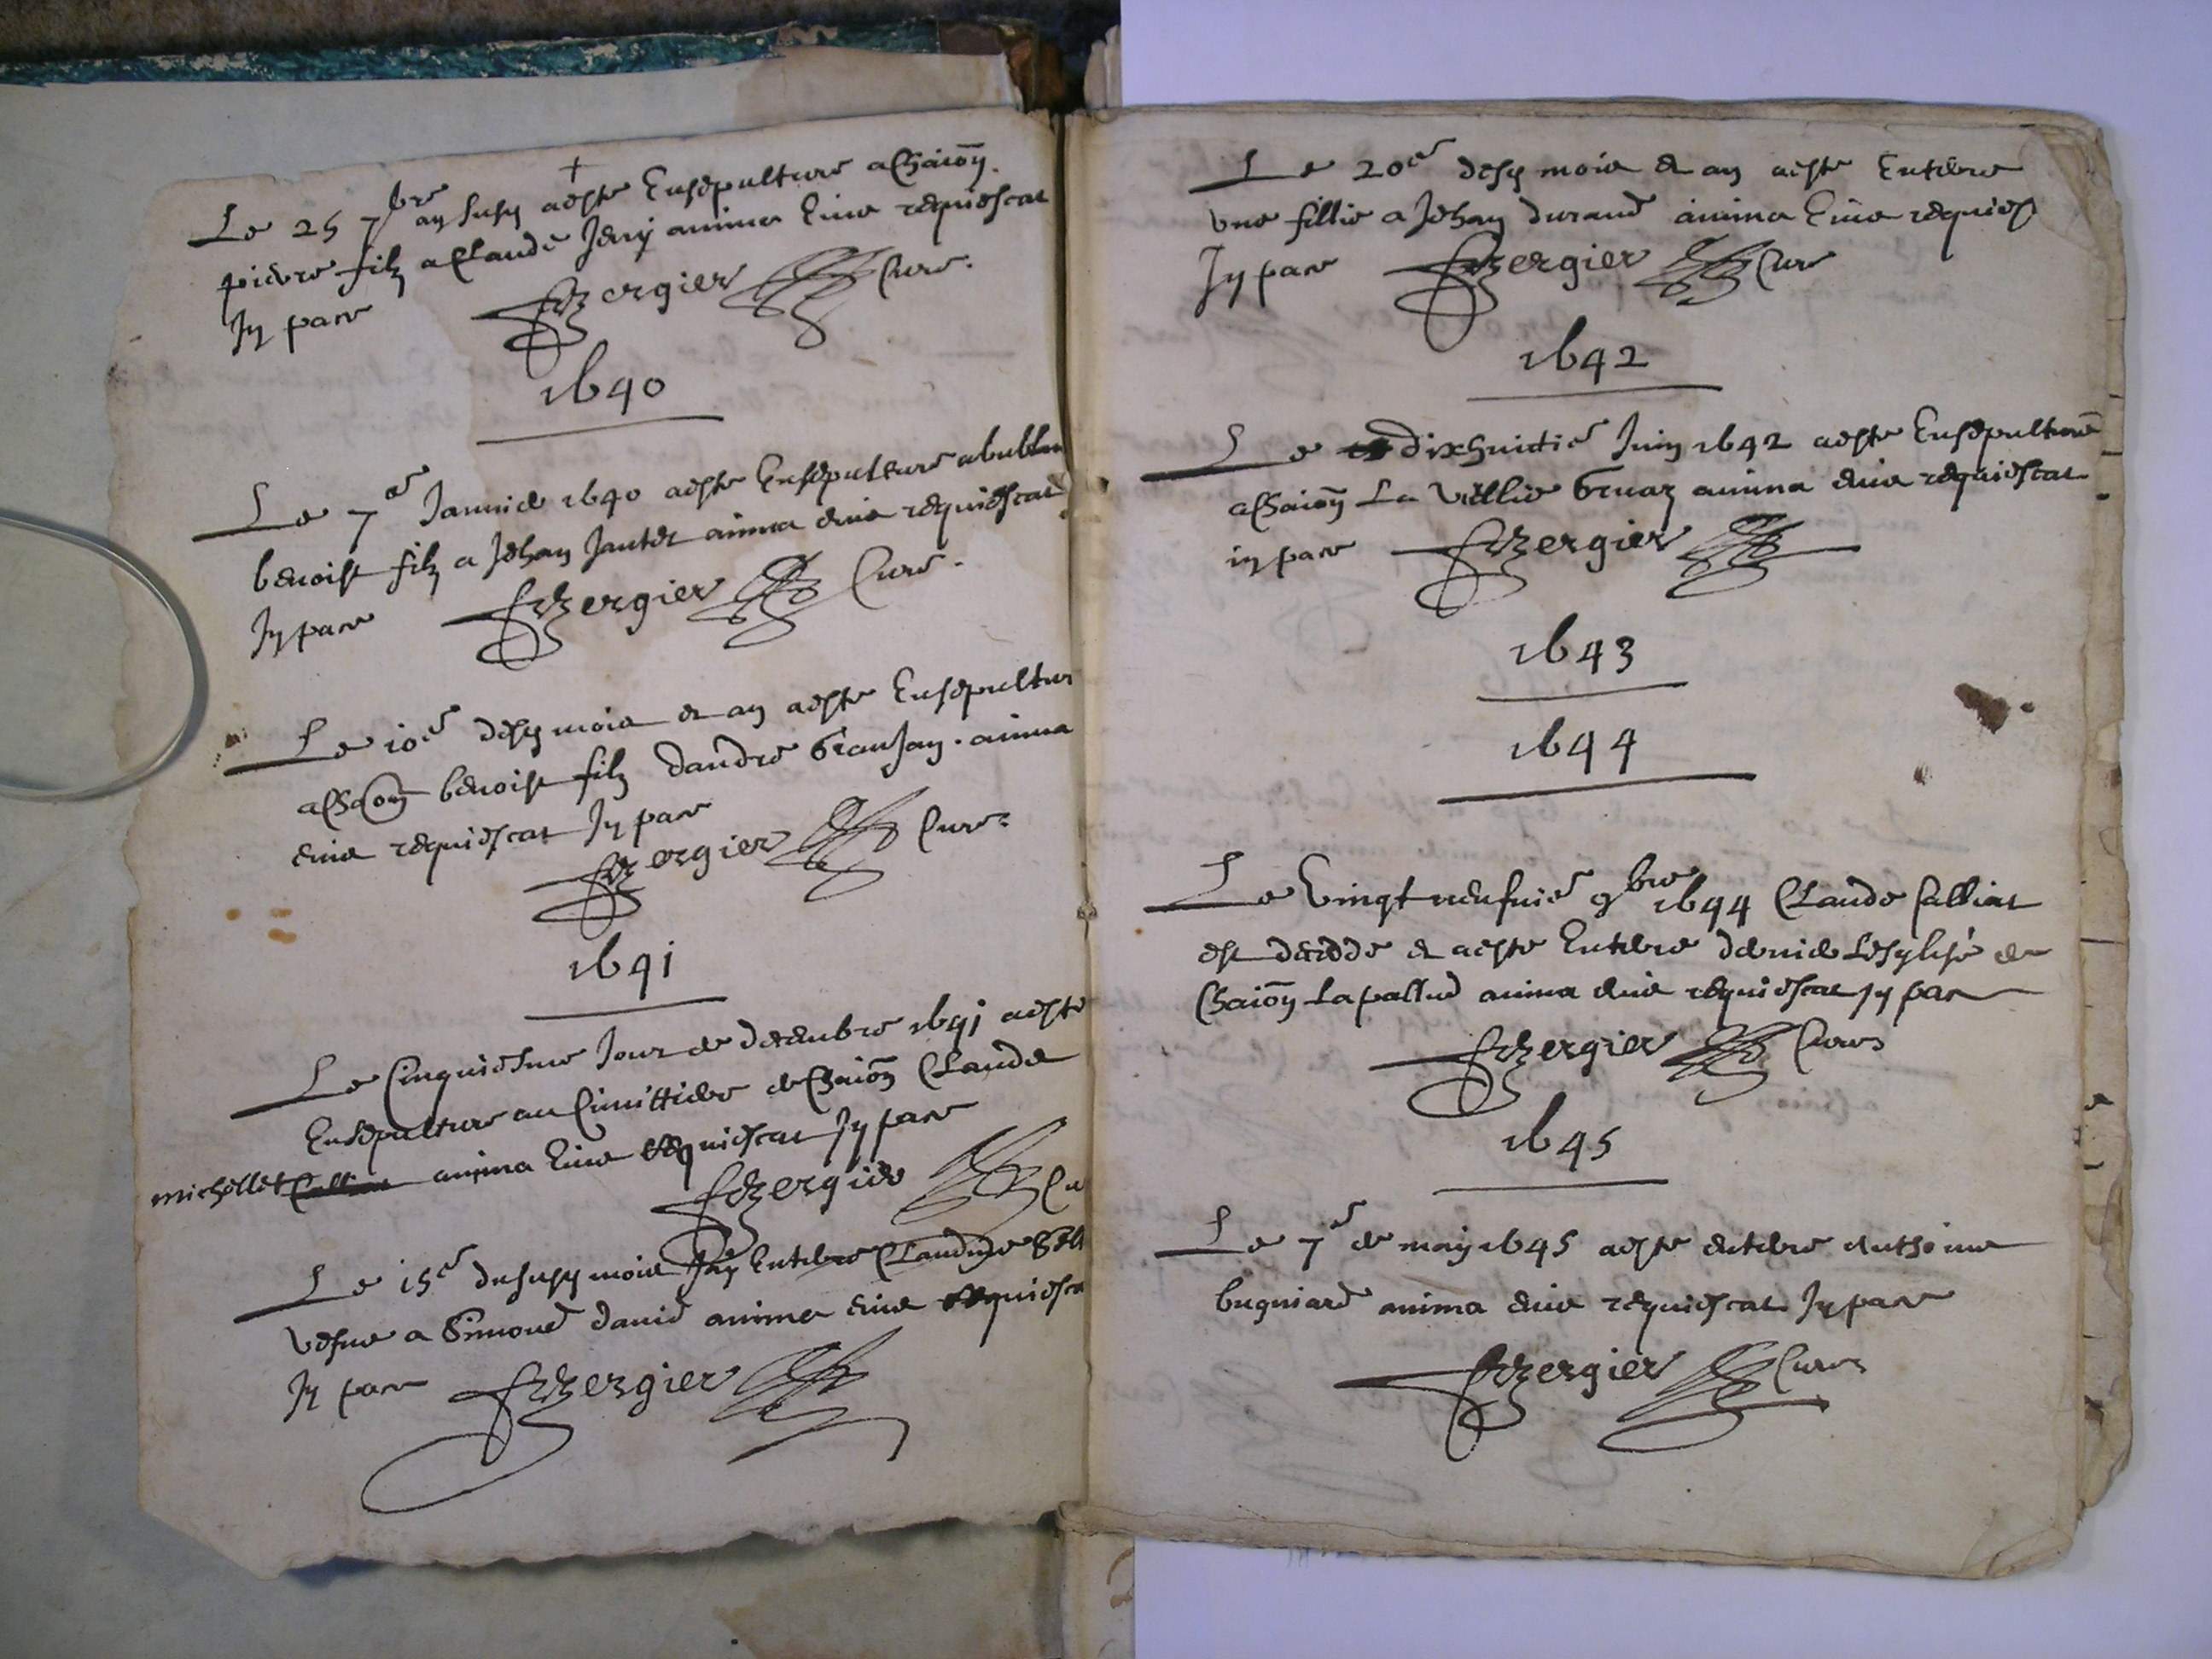 +
Le 25 7bre an susd aeste Ensepulture a Chaion
pierre filz a Claude Jeny anima Eius requiescat
In pace Bergier Cure.
1640
Le 7e Januier 1640 aeste Ensepulture a
benoist filz a Jehan Jantet anima eius requiescat
In pace Bergier Cure.
Le 10e desd mois et an aeste Ensepultur
a Chaion benoist filz dandre GranJan. anima
eius requiescat In pace
Bergier Cure
1641
Le Cinquiesme Jour de decembre 1641 aeste
Ensepulture au Cimittiere de Chaion Claude
michellet anima Eius requiescat In pace
Bergier Cu
Le 15e du susd mois Jay Entere Claudine
vefue a Simond dauid anima eius requiesca
In pace Bergier
Le 20e desd mois et an aeste Entere
vne fillie a Jehan durand anima Eius requies
In pace Bergier Cure
1642
Le dixhuictie Juin 1642 aeste Ensepulture
a Chaion La Vellie Gruaz anima eius requiescat
in pace Bergier
1643
1644
Le Vingt neufuie 9bre 1644 Claude Calliat
est decede et aeste Entere dernier Lesglise de
Chaion Lapallud anima eius requiescat In pace
Bergier Cure
1645
Le 7e de may 1645 aeste entere Anthoine
bugniard anima eius requiescat In pace
Bergier Cure